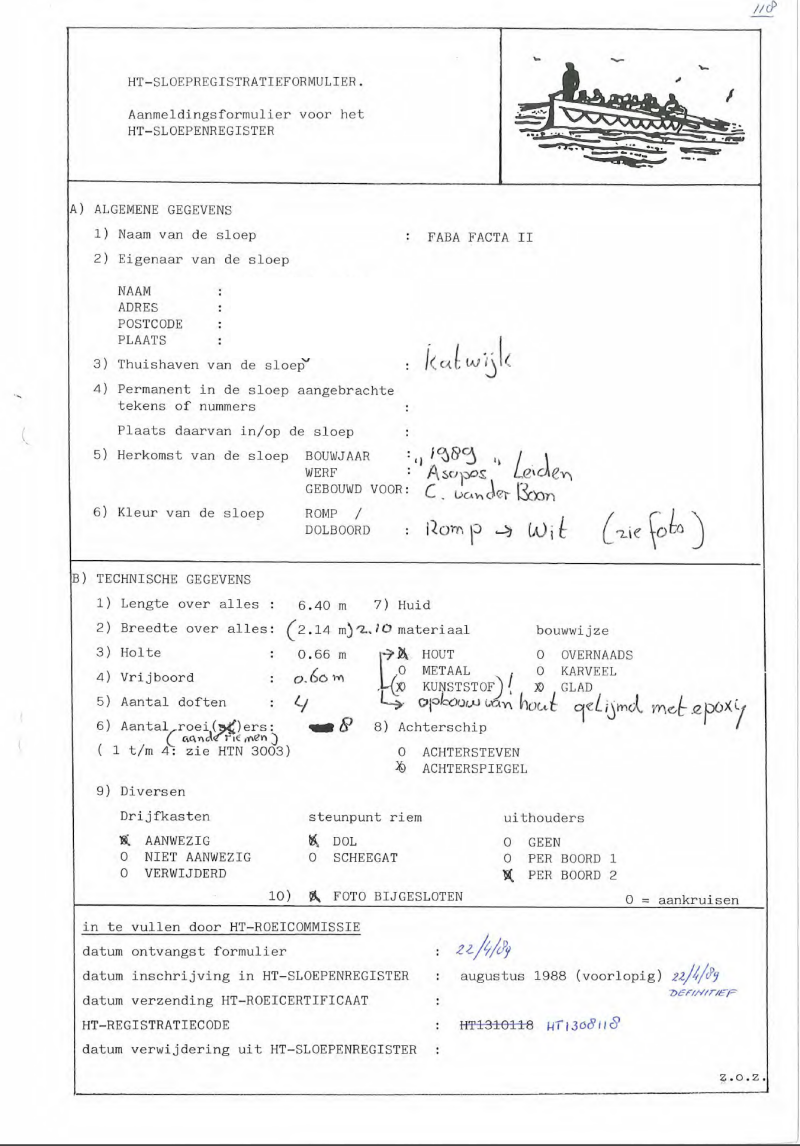 118
HT-SLOEPREGISTRATIEFORMULIER.
Aanmeldingsformulier voor het
HT-SLOEPENREGISTER
A) ALGEMENE GEGEVENS
1) Naam van de sloep : FABA FACTA II
2) Eigenaar van de sloep
NAAM :
ADRES :
POSTCODE :
PLAATS :
3) Thuishaven van de sloep : Katwijk
4) Permanent in de sloep aangebrachte
tekens of nummers :
Plaats daarvan in/op de sloep :
5) Herkomst van de sloep BOUWJAAR : "1989"
WERF : "Asopos" Leiden
GEBOUWD VOOR: C. van der Boon
6) Kleur van de sloep ROMP /
DOLBOORD : Romp → Wit (zie foto)
B) TECHNISCHE GEGEVENS
1) Lengte over alles : 6.40 m 7) Huid
2) Breedte over alles: (2.14 m) 2.10 materiaal bouwwijze
3) Holte : 0.66 m → HOUT O OVERNAADS
O METAAL O KARVEEL
4) Vrijboord : 0.60 m (KUNSTSTOF)! GLAD
5) Aantal doften : 4 → opbouw van hout gelijmd met epoxy
6) Aantal roei( )ers: 8 8) Achterschip
(aan de riemen)
( 1 t/m 4: zie HTN 3003) O ACHTERSTEVEN
ACHTERSPIEGEL
9) Diversen
Drijfkasten steunpunt riem uithouders
AANWEZIG DOL O GEEN
O NIET AANWEZIG O SCHEEGAT O PER BOORD 1
O VERWIJDERD PER BOORD 2
10) FOTO BIJGESLOTEN O = aankruisen
in te vullen door HT-ROEICOMMISSIE
datum ontvangst formulier : 22/4/89
datum inschrijving in HT-SLOEPENREGISTER : augustus 1988 (voorlopig) 22/4/89
DEFINITIEF
datum verzending HT-ROEICERTIFICAAT :
HT-REGISTRATIECODE : HT1310118 HT1308118
datum verwijdering uit HT-SLOEPENREGISTER :
z.o.z.